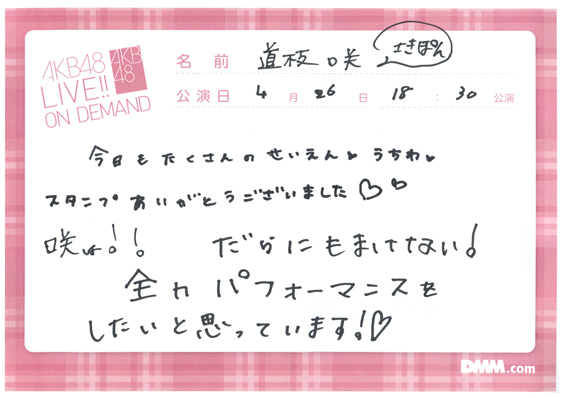 AKB48
LIVE!!
ON DEMAND
AKB
48
名前 道枝咲 さきぽん
公演日 4月26日 18:30公演
今日もたくさんのせいえん♥うちわ♥
スタンプありがとうございました♡♡
咲は!! だれにもまけない!
全力パフォーマンスを
したいと思っています!♡
DMM.com